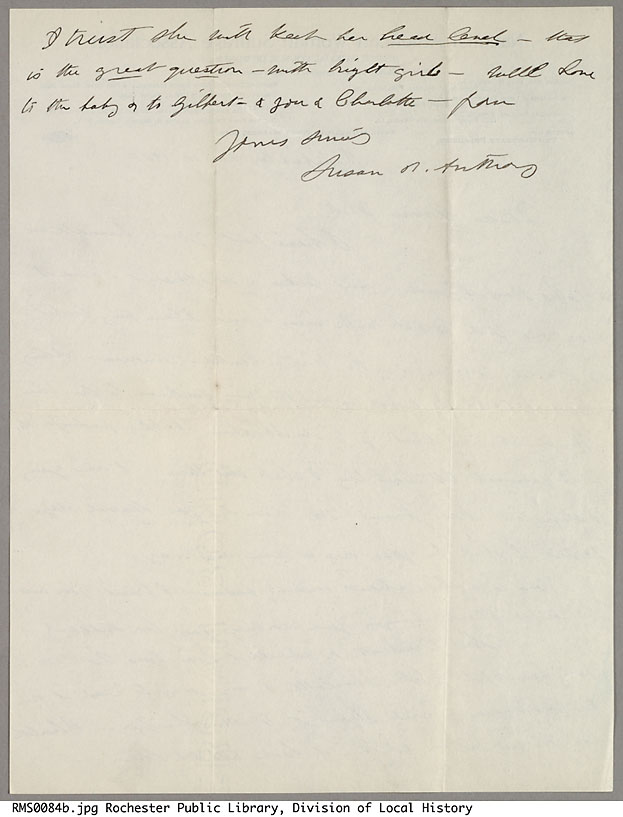 I trust she will keep her head level — that
is the great question — with bright girls — Well Love
to the baby & to Gilbert — & you & Charlotte — from
Yours sincerely
Susan B. Anthony
RMS0084b.jpg Rochester Public Library, Division of Local History